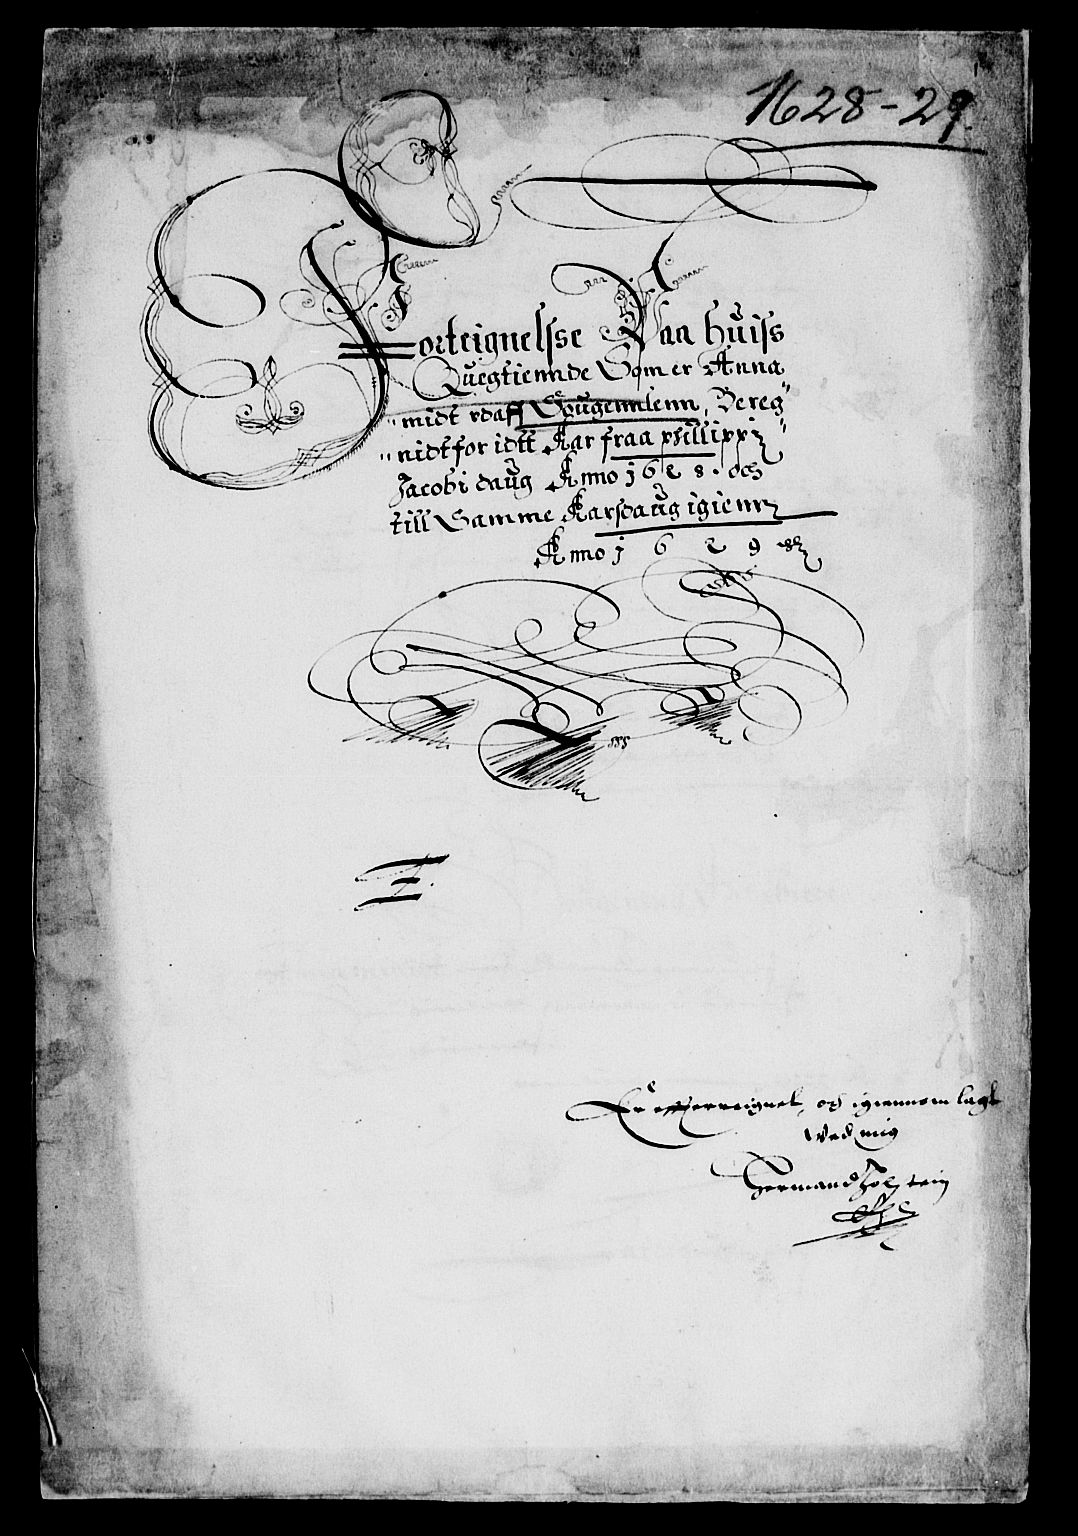 1628-29.
Forteignelsse Paa huiss
Quegtiennde Som er Anna
midt vdaff Sougennlenn, Bereg
nidt for idtt Aar fraa phillippi
Jacobi daug Anno 1628. och
till Samme Aarsdaug igienn
Anno 1629
Er offuerreignet, och igiennom lagt
wed mig
Hermand Holstein